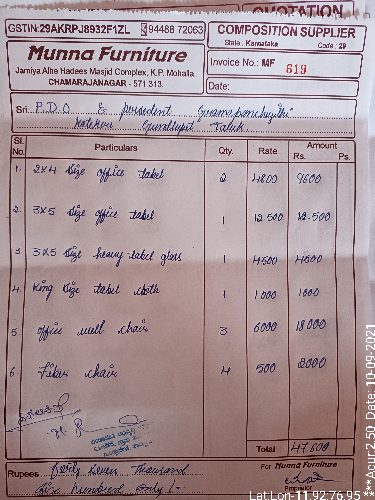 QUOTATION
GSTIN:29AKRPJ8932F1ZL 94488 72063
COMPOSITION SUPPLIER
State : Karnataka Code : 29
Munna Furniture
Jamiya Alhe Hadees Masjid Complex, K.P. Mohalla,
CHAMARAJANAGAR - 571 313.
Invoice No.: MF 619
Date:
Sri P.D.O & president
Gundlupet Taluk
Sl. No. Particulars Qty. Rate Amount Rs. Ps.
1. 2x4 size office tabel 2 4800 9600
2. 3x5 size office tabel 1 12.500 12.500
3 3x5 size heavy tabel glass 1 4500 4500
4. King size tabel cloth 1 1000 1000
5. office well chair 3 6000 18000
6 chair 4 500 2000
Total 47.600
Rupees Forty Seven Thousand
Six Hundred only/-
For Munna Furniture
Proprietor
Lat,Lon-11.92,76.95**Acur:2.50 Date: 10-09-2021